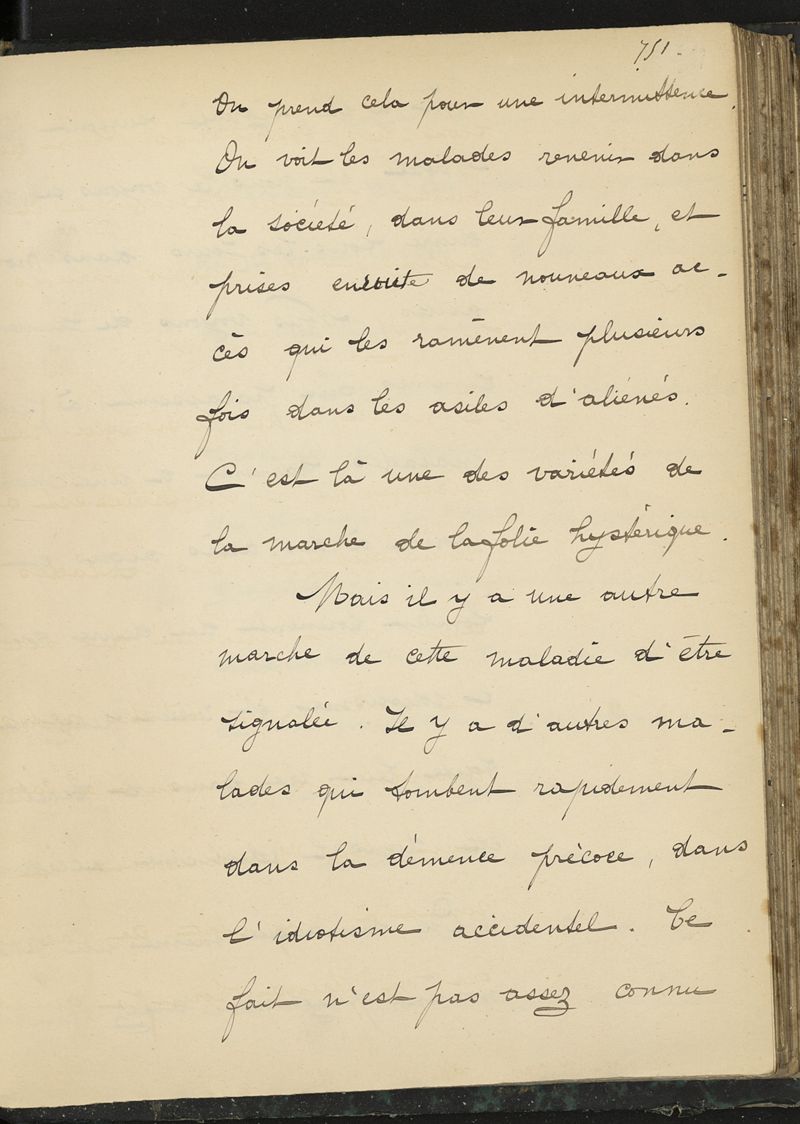 751.
On prend cela pour une intermittence.
On voit les malades revenir dans
la société, dans leur famille, et
prises ensuite de nouveaux ac-
cès qui les ramènent plusieurs
fois dans les asiles d'aliénés.
C'est là une des variétés de
la marche de la folie hystérique.
Mais il y a une autre
marche de cette maladie d'être
signalée. Il y a d'autres ma-
lades qui tombent rapidement
dans la démence précoce, dans
l'idiotisme accidentel. Ce
fait n'est pas assez connu